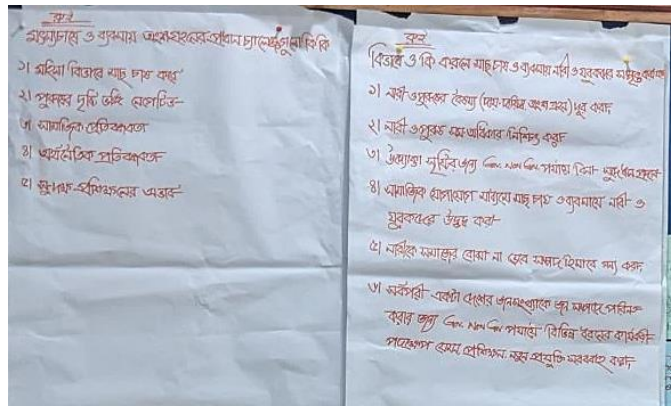 রুই
মাছচাষে ও ব্যবসায় অংশগ্রহনের প্রধান চ্যালেঞ্জগুলো কি কি
১। মহিলা কিভাবে মাছ চাষ করে
২। পুরুষের দৃষ্টি ভঙ্গি নেগেটিভ
৩। সামাজিক প্রতিবন্ধকতা
৪। অর্থনৈতিক প্রতিবন্ধকতা
৫। প্রশিক্ষনের অভাব
রুই
কিভাবে ও কি করলে মাছ চাষ ও ব্যবসায় নারী ও যুবকদের
১। নারী ও পুরুষের বৈষম্য দূর করা
২। নারী ও পুরুষ সম অধিকার নিশ্চিত করা
৩। উদ্যোক্তা সৃষ্টির জন্য Gov. Non Gov পর্যায়ে বিনা
৪। সামাজিক যোগাযোগ মাধ্যমে মাছ চাষ ও ব্যবসায়ে নারী ও
যুবকদের উদ্বুদ্ধ করা
৫। নারীকে সমাজের বোঝা না ভেবে সম্পদ হিসাবে গন্য করা
৬। সর্বপরী একটা দেশের জনসংখ্যাকে জন সম্পদে পরিনত
করার জন্য Gov. Non Gov পর্যায়ে বিভিন্ন ধরনের কার্যকরী
পদক্ষেপ যেমন প্রশিক্ষন, প্রযুক্তি সরবরাহ করা